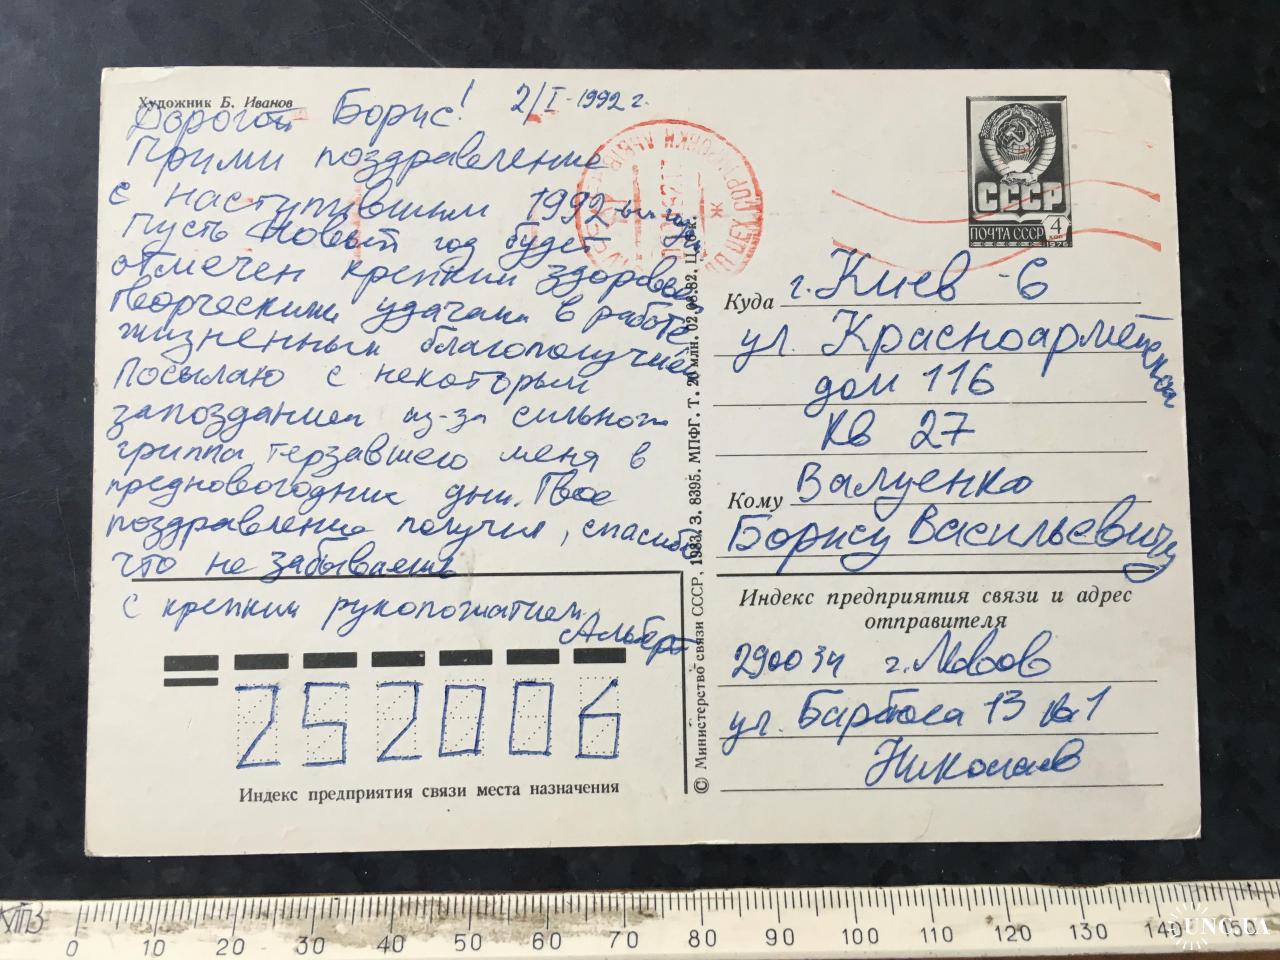 Художник Б. Иванов
2/I-1992 г.
Дорогой Борис!
Прими поздравление
с наступившим 1992-ым годом
Пусть Новый год будет
отмечен крепким здоровьем
творческими удачами в работе
жизненным благополучием
Посылаю с некоторым
запозданием из-за сильного
гриппа терзавшего меня в
предновогодние дни. Твое
поздравление получил, спасибо
что не забываешь
с крепким рукопожатием
Альберт
252006
Индекс предприятия связи места назначения
© Министерство связи СССР, 1983. З. 8395. МПФГ. Т. 20 млн. 02.08.82. Ц. 5 к.
СССР
ПОЧТА СССР
4
коп
1976
Куда г. Киев - 6
ул. Красноармейская
дом 116
кв 27
Кому Валуенко
Борису Васильевичу
Индекс предприятия связи и адрес
отправителя
290034 г. Львов
ул. Барбюса 13 кв 1
Николаев
0 10 20 30 40 50 60 70 80 90 100 110 120 130 140 150
UNC.UA